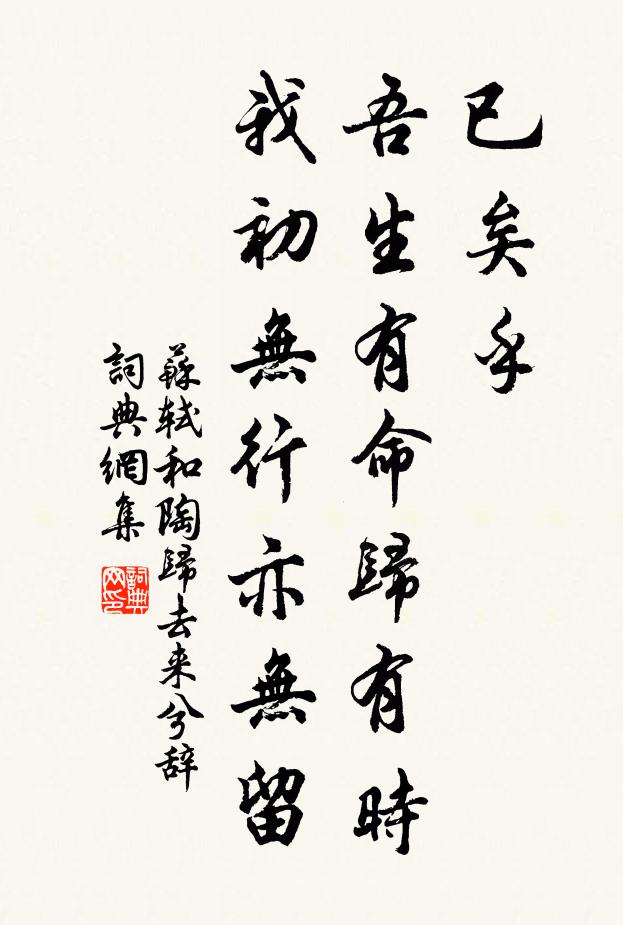 已矣乎
吾生有命歸有時
我初無行亦無留
蘇軾和陶歸去来兮辞
詞典網集
詞典網印